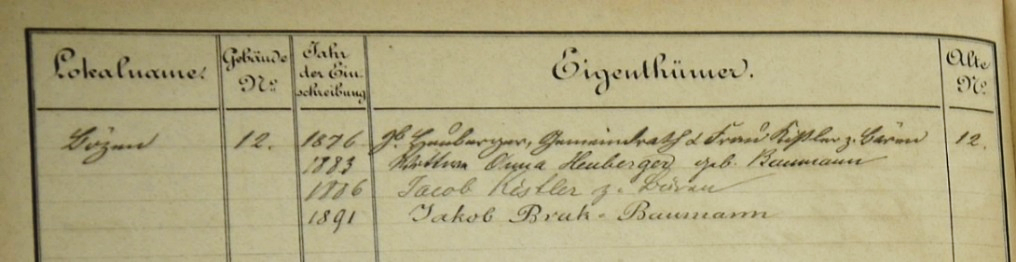 Lokalname. Gebäude No. Jahr der Einschreibung Eigenthümer. Alte No.
Bözen 12. 1876 Jb. Heuberger, Gemeindrath & Frau Kistler z. Bären 12.
1883 Wittwe Anna Heuberger geb. Baumann
1886 Jacob Kistler z. Bären
1891 Jakob Brak-Baumann